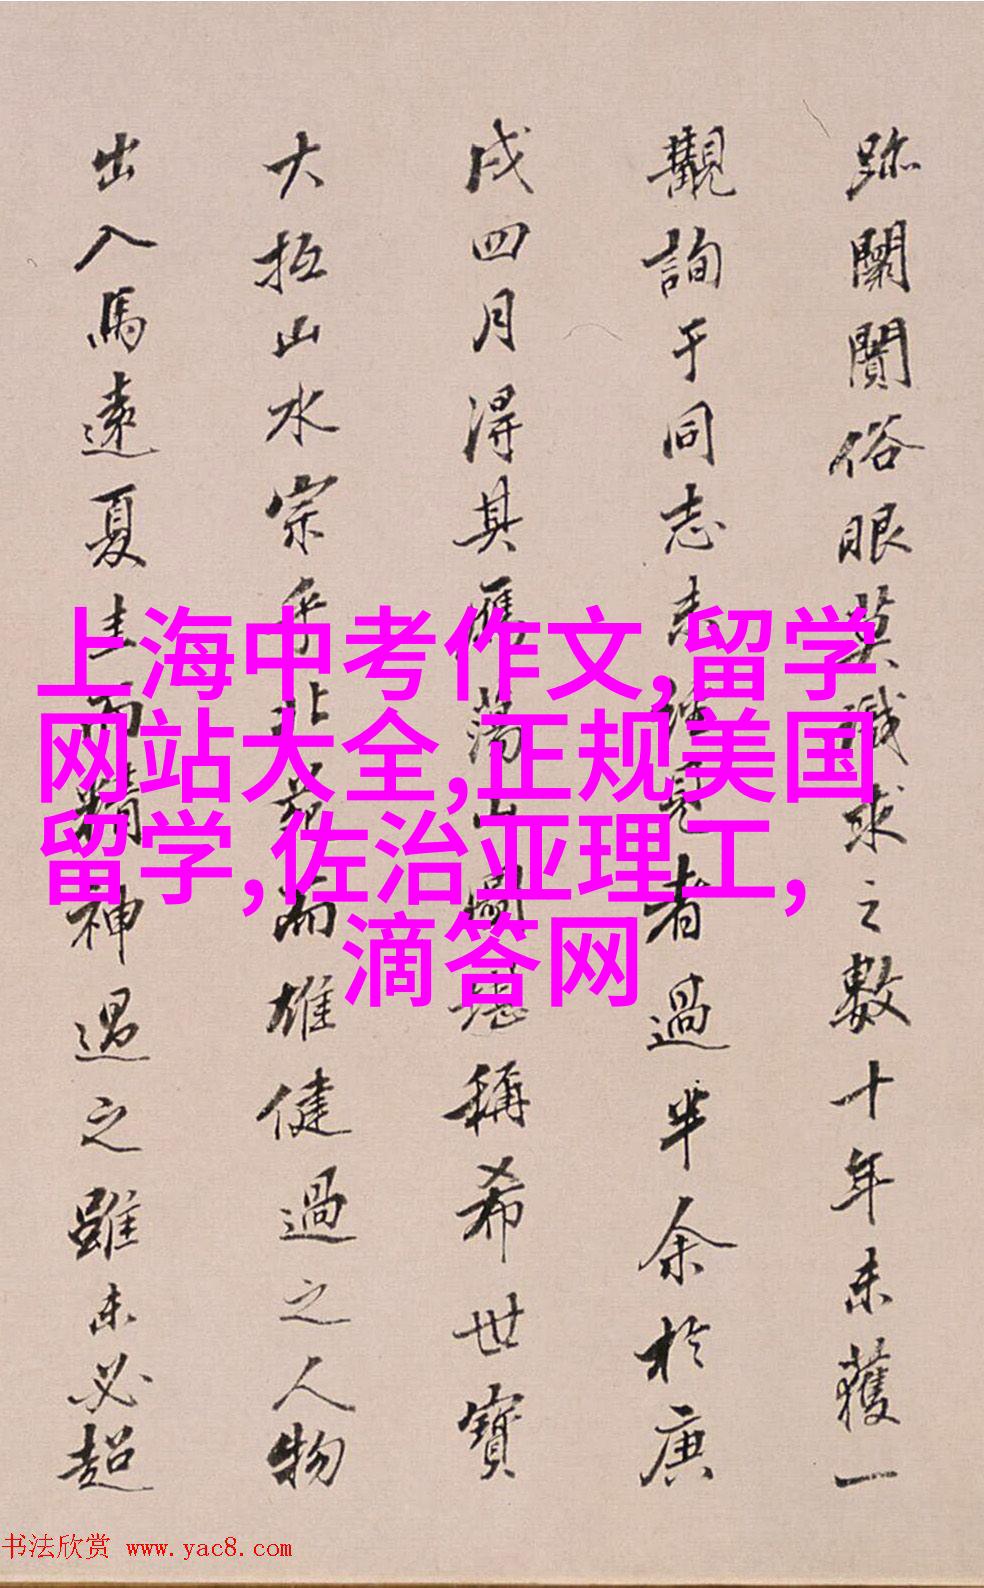 跡闤闠俗眼莫識求之數十年未獲一
觀詢于同志未經見者過半余於庚
戌四月得其雁蕩山圖堪稱希世寶
大抵山水宗乎北苑而雄健過之人物
出入馬遠夏圭而精神過之雖未必超
上海中考作文,留学
网站大全,正规美国
留学,佐治亚理工,
滴答网
书法欣赏 www.yac8.com